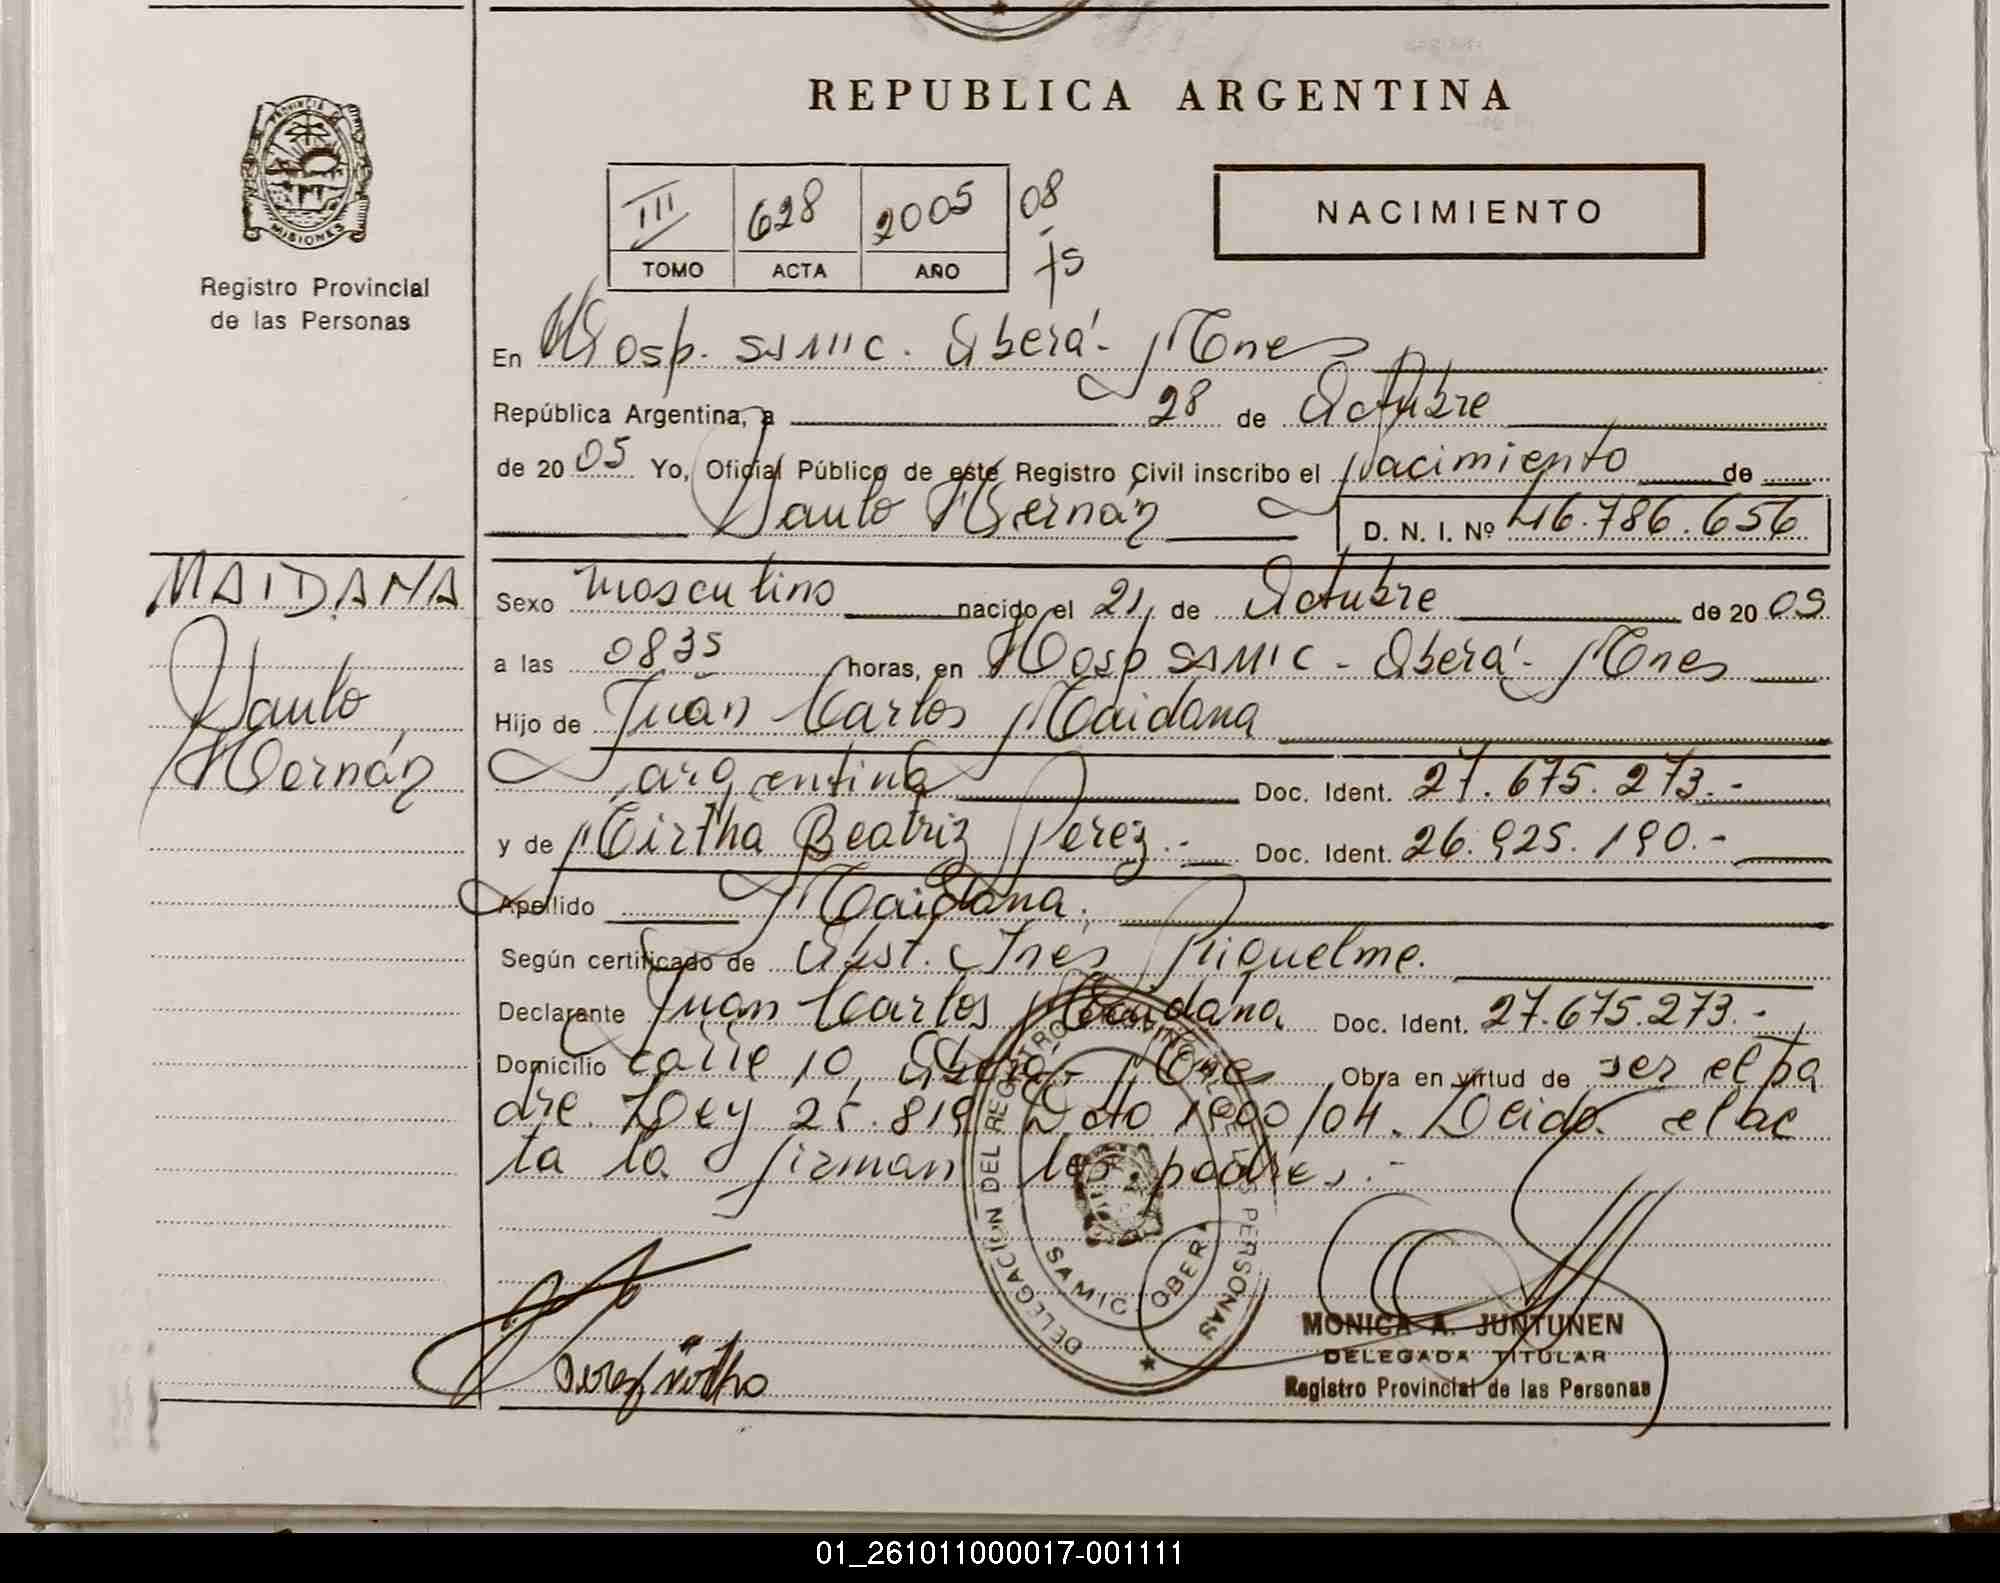 REPUBLICA ARGENTINA
PROVINCIA DE
MISIONES
Registro Provincial
de las Personas
III 628 2005 08
TOMO ACTA AÑO
NACIMIENTO
En Hosp. SAMIC. Oberá - Mnes
República Argentina, a 28 de Octubre
de 20 05 Yo, Oficial Público de este Registro Civil inscribo el Nacimiento de
Paulo Hernán D. N. I. Nº 46.786.656
MAIDANA
Paulo
Hernán
Sexo masculino nacido el 21, de Octubre de 20 05
a las 0835 horas, en Hosp SAMIC - Oberá - Mnes
Hijo de Juan Carlos Maidana
argentina Doc. Ident. 27.675.273.-
y de Mirtha Beatriz Perez.- Doc. Ident. 26.925.190.-
Apellido Maidana.
Según certificado de Obst. Ines Riquelme.
Declarante Juan Carlos Maidana Doc. Ident. 27.675.273.-
Domicilio calle 10, Oberá - Mnes Obra en virtud de ser el pa
dre. Ley 25.819 Dto 1900/04. Leida el ac
ta la firman los padres.-
DELEGACIÓN DEL REGISTRO PROVINCIAL DE LAS PERSONAS
SAMIC OBERA
Perez mirtha
MONICA A. JUNTUNEN
DELEGADA TITULAR
Registro Provincial de las Personas
01_261011000017-001111